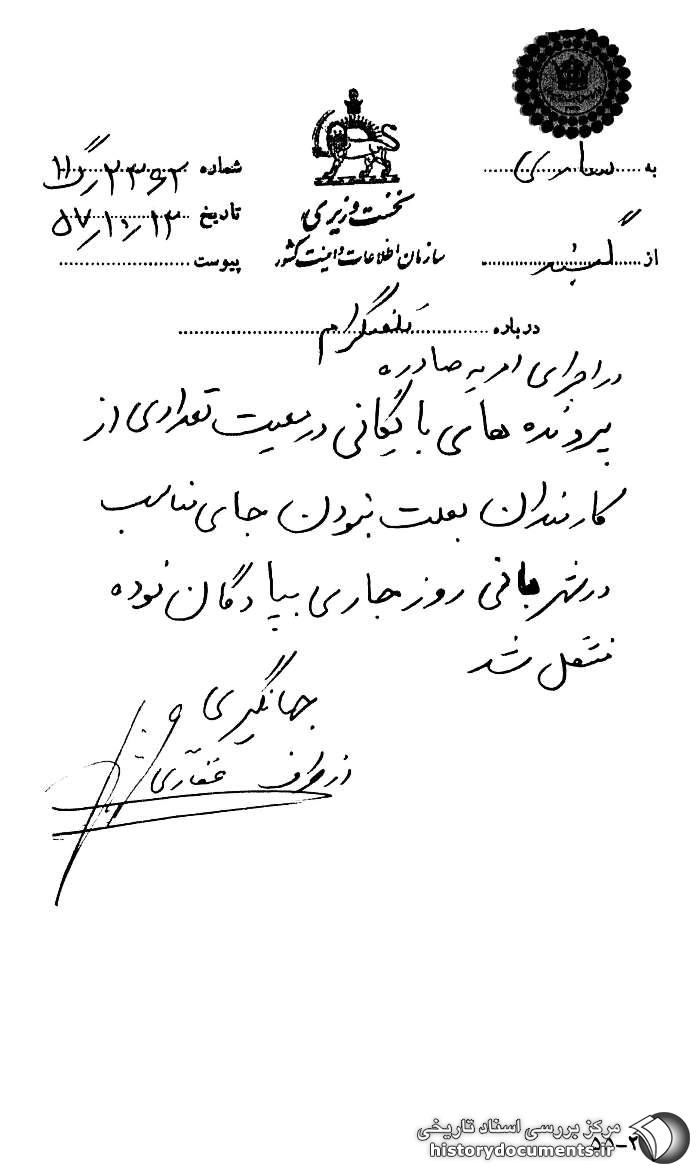 به ساری
شماره ۲۳۶۲/گ ۱۱
نخست وزیری
تاریخ ۵۷/۱۰/۱۳
از گنبد
سازمان اطلاعات و امنیت کشور
پیوست
درباره تلفنگرام
در اجرای امریه صادره
پرونده های بایگانی در معیت تعدادی از
کارمندان بعلت نبودن جای مناسب
در شهربانی روز جاری بپادگان نوده
منتقل شد
جهانگیری
از طرف غفاری
مرکز بررسی اسناد تاریخی
historydocuments.ir